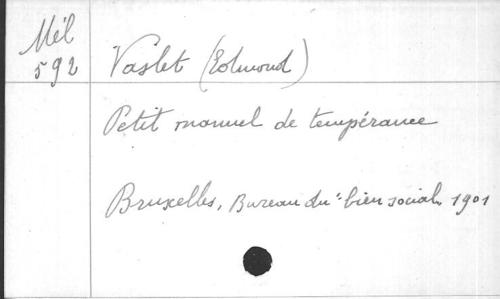 Mél
592
Vaslet (Edmond)
Petit manuel de tempérance
Bruxelles, Bureau du "bien social, 1901